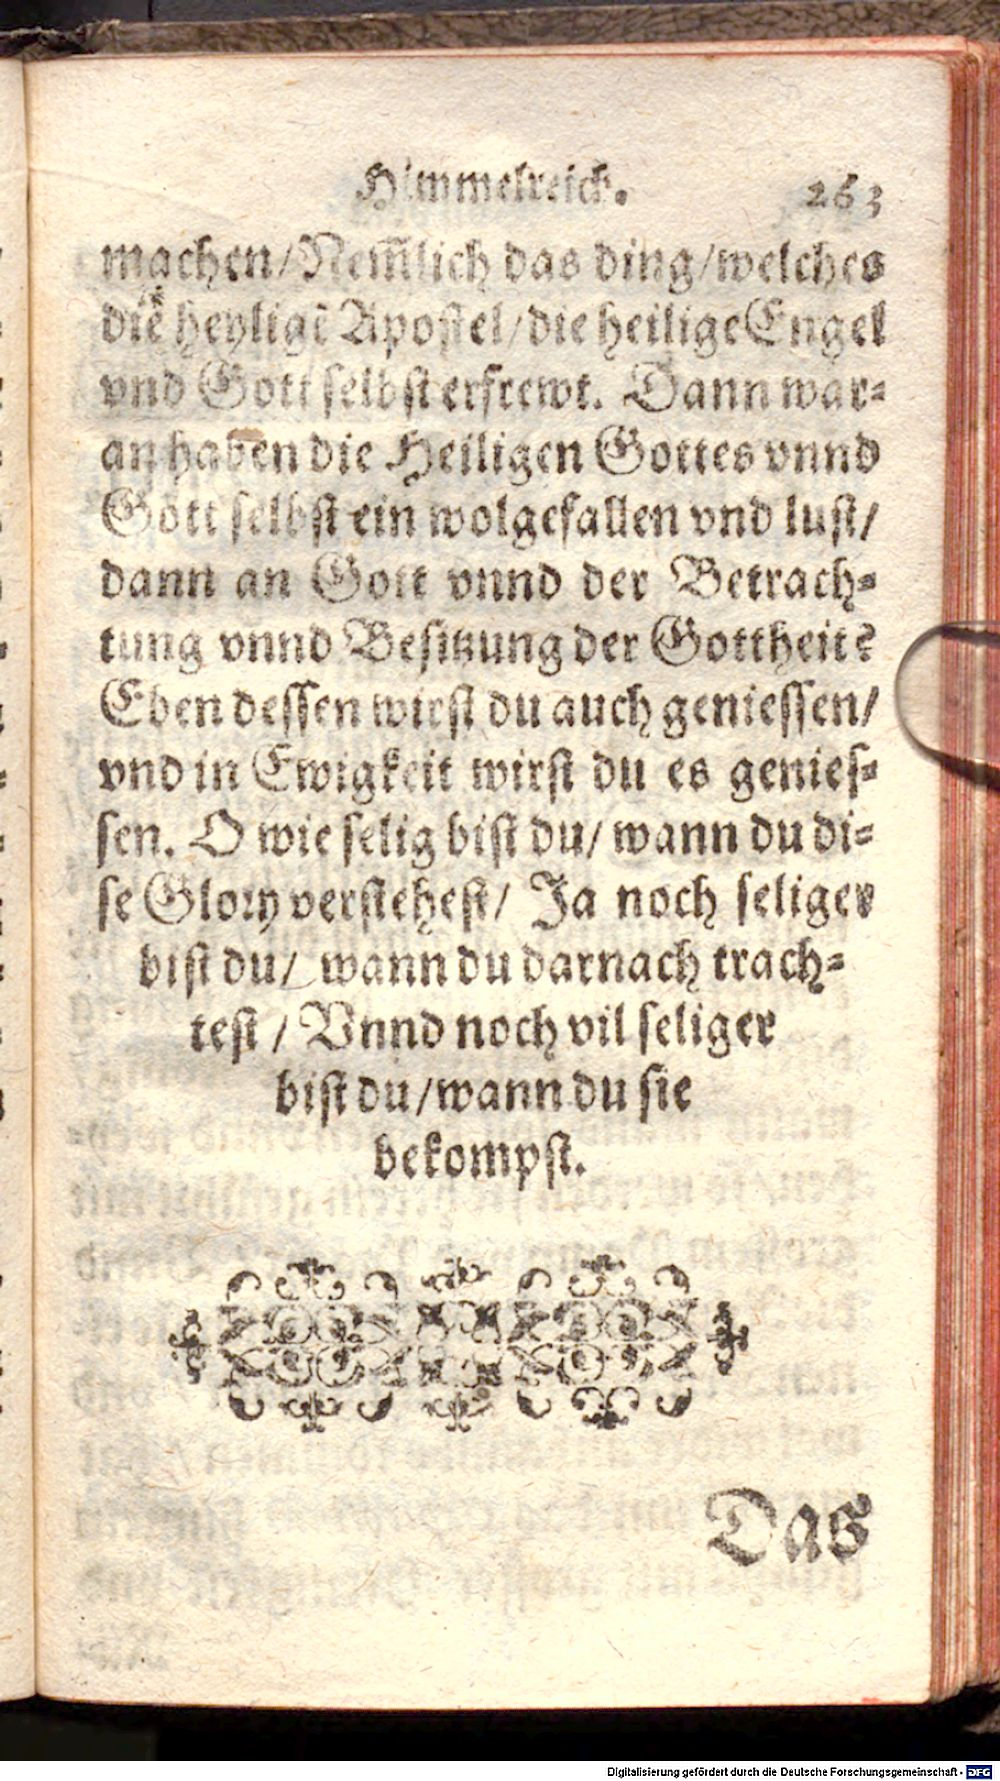 Himmelreich. 263
machen/Nem̃lich das ding/welches
die heyligẽ Apostel/die heilige Engel
vnd Gott selbst erfrewt. Dann war-
an haben die Heiligen Gottes vnnd
Gott selbst ein wolgefallen vnd lust/
dann an Gott vnnd der Betrach-
tung vnnd Besitzung der Gottheit?
Eben dessen wirst du auch geniessen/
vnd in Ewigkeit wirst du es genies-
sen. O wie selig bist du/ wann du di-
se Glory verstehest/ Ja noch seliger
bist du/ wann du darnach trach-
test / Vnnd noch vil seliger
bist du/wann du sie
bekompst.
Das
Digitalisierung gefördert durch die Deutsche Forschungsgemeinschaft - DFG